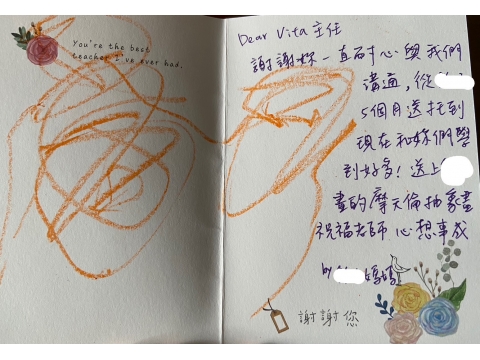 You're the best
teacher I've ever had.
Dear Vita 主任
謝謝妳一直耐心與我們
溝通，從
5個月送托到
現在和妳們學
到好多！送上
畫的摩天倫抽象畫
祝福老師 心想事成
by 媽媽
謝謝您